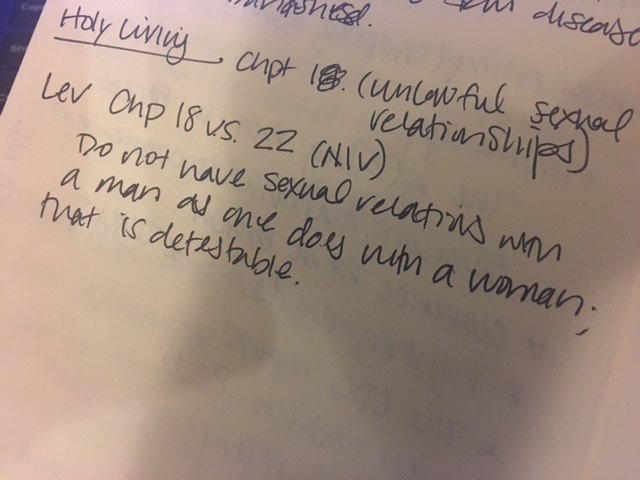 disease
Holy Living
Chpt 18. (unlawful sexual
relationships)
Lev Chp 18 vs. 22 (NIV)
Do not have sexual relations with
a man as one does with a woman;
that is detestable.